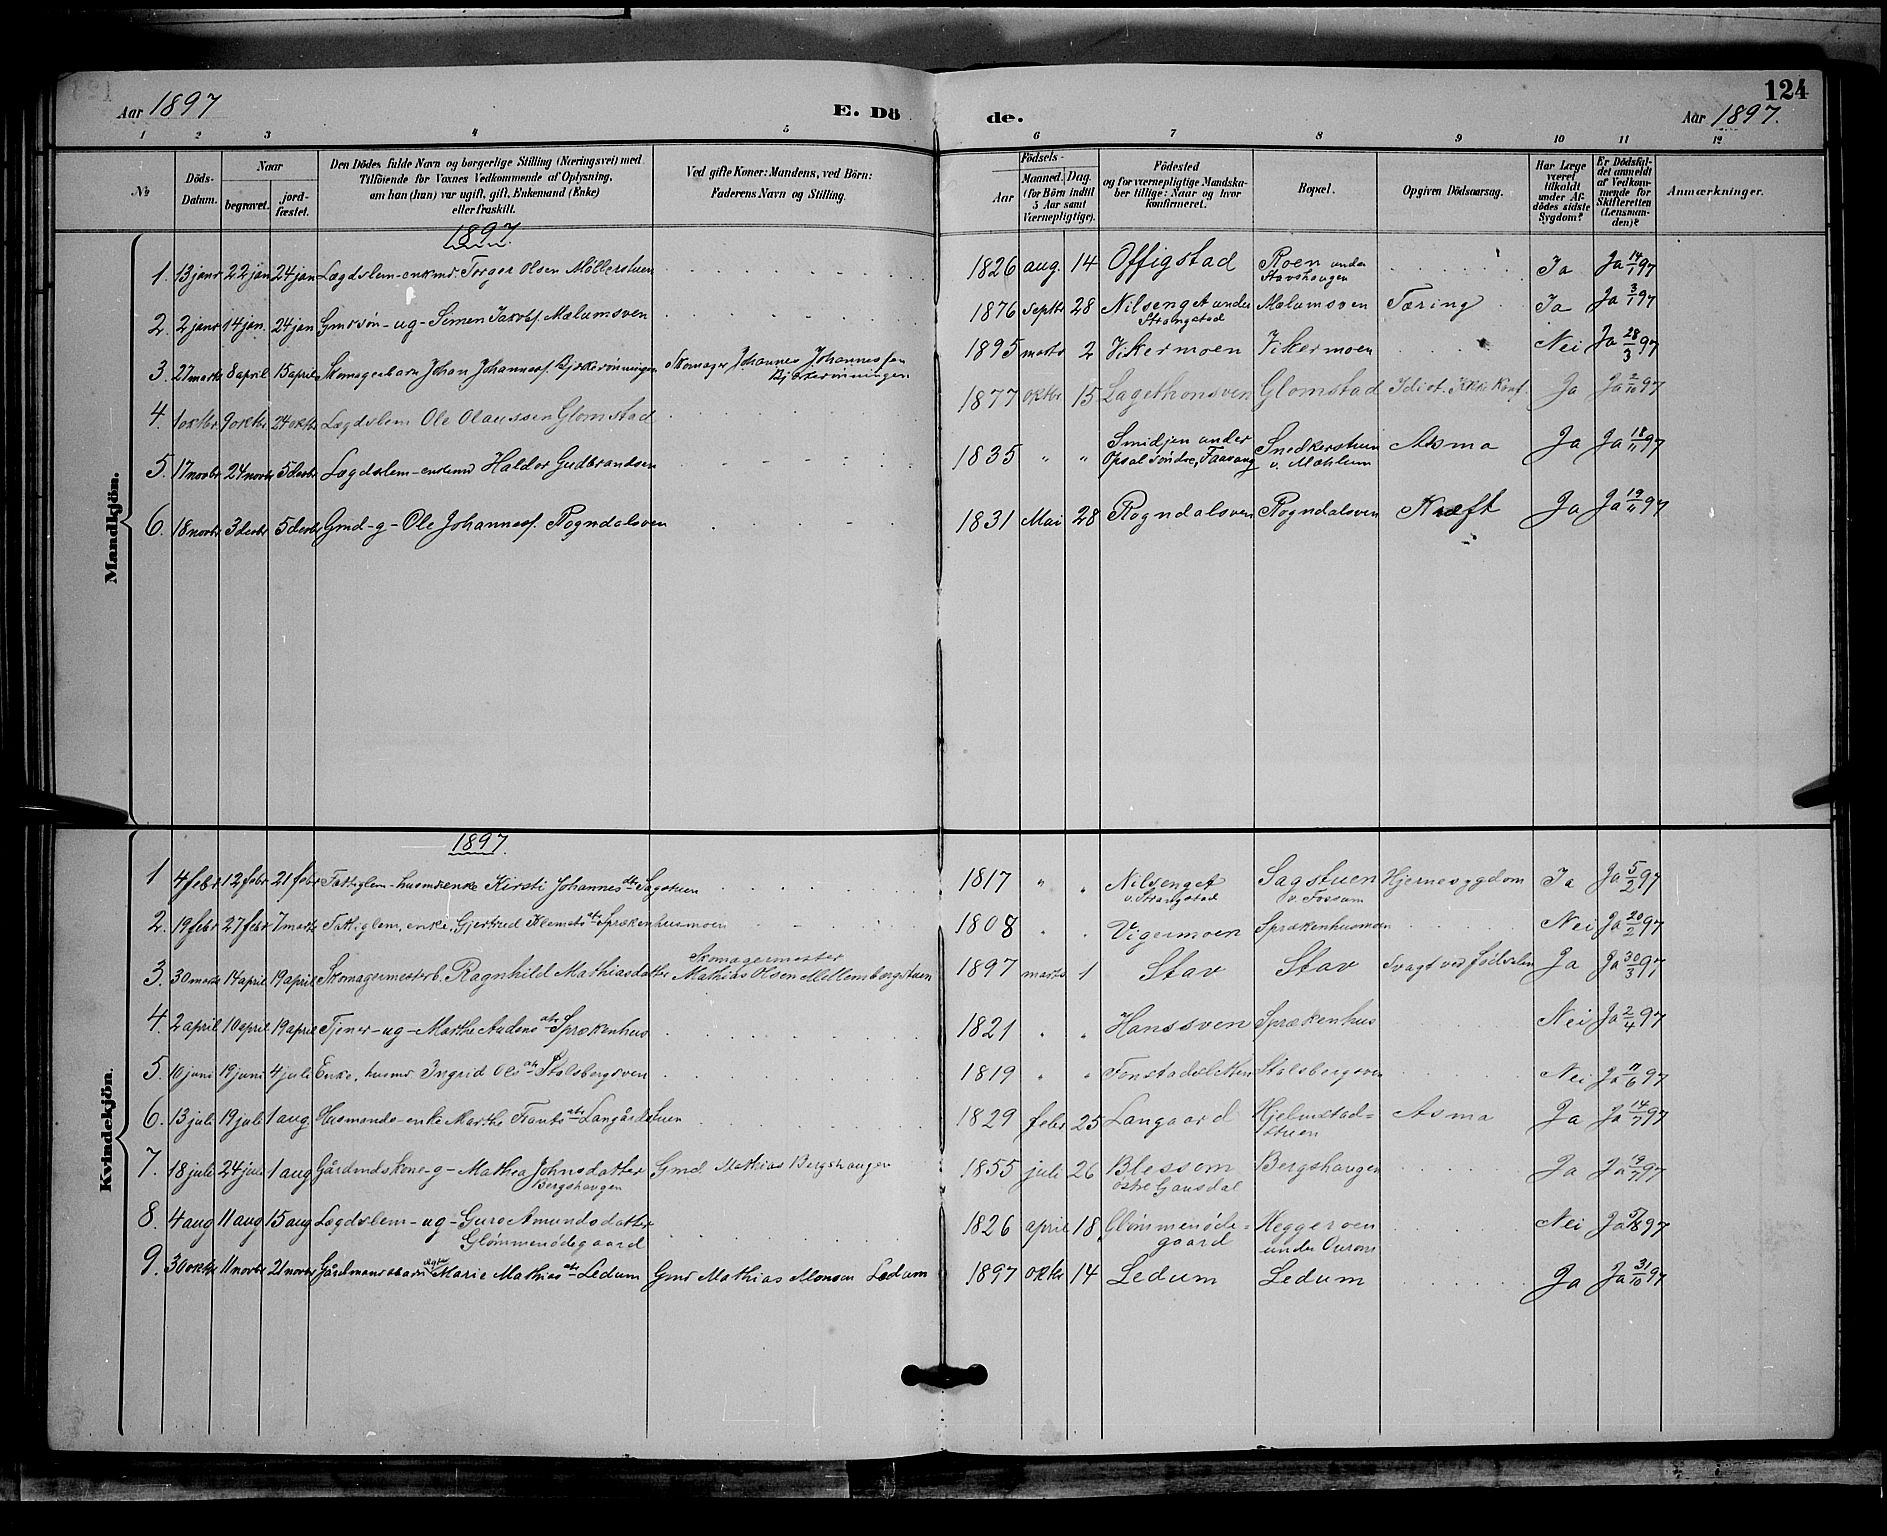 124
Aar 1897
E. Dö
de.
Aar 1897.
1 2 3 4 5 6 7 8 9 10 11 12
№
Döds-Datum.
Naar
begravet.
jord-fæstet.
Den Dödes fulde Navn og borgerlige Stilling (Næringsvei) med
Tilföiende for Voxnes Vedkommende af Oplysning,
om han (hun) var ugift, gift, Enkemand (Enke)
eller fraskilt.
Ved gifte Koner: Mandens, ved Börn:
Faderens Navn og Stilling.
Födsels-
Aar
Maaned. Dag.
(for Börn indtil
5 Aar samt
Værnepligtige).
Födested
og for værnepligtige Mandska-
ber tillige: Naar og hvor
konfirmeret.
Bopæl.
Opgiven Dödsaarsag.
Har Læge
været
tilkaldt
under Af-
dödes sidste
Sygdom?
Er Dödsfal-
det anmeldt
af Vedkom-
mende for
Skifteretten
(Lensman-
den)?
Anmærkninger.
Mandkjön.
1897.
1. 13 janr 22 jan 24 jan Lægdslem-enkmd. Torger Olsen Möllerstuen 1826 aug. 14 Offigstad Roen under Stavshaugen Ja Ja 14/1 97
2. 2 janr 14 jan. 24 jan Gmdsøn-ug-Simen Jakobs. Mælumsven 1876 Septbr 28 Nilsenget under Strangstad Mælumsven Tæring Ja Ja 3/1 97
3. 27 marts 8 april 15 april Skomagerbarn Johan Johanness. Bjerkerønningen Skomager Johannes Johannessen Bjerkerønningen 1895 marts 2 Vikermoen Vikermoen Nei Ja 28/3 97
4. 1 oktbr 9 oktbr 24 oktbr Lægdslem Ole Olaussen Glomstad 1877 oktbr 15 Lagethonsven Glomstad Idiot. Ikke Konf. Ja Ja 2/10 97
5. 17 novbr 24 novbr 5 decbr Lægdslem-enkemd Haldor Gudbrandsen 1835 " " Smidjen under Opsal søndre, Faavang Snedkerstuen v. Mæhlum Asma Ja Ja 18/11 97
6. 18 novbr 3 decbr 5 decbr Gmd-g-Ole Johanness. Rogndalsven 1831 Mai 28 Rogndalsven Rogndalsven Kræft Ja Ja 19/11 97
Kvindekjön.
1897.
1 4 febr 12 febr 21 febr Fattiglem-husmdsenke Kirsti Johannesdtr Sagstuen 1817 " " Nilsenget v. Strangstad Sagstuen v. Fossum Hjernesygdom Ja Ja 5/2 97
2. 19 febr 27 febr 7 marts Fattiglem, enke, Gjertrud Klemetsdtr Sprækenhusmoen 1808 " " Vigermoen Sprækenhusmoen Nei Ja 20/2 97
3. 30 marts 14 april 19 april Skomagermesterb. Ragnhild Mathiasdatter Skomagermester Mathias Olsen Mellembergstuen 1897 marts 1 Stav Stav Svagt ved fødselen Ja Ja 30/3 97
4. 2 april 10 april 19 april Tjener-ug-Marthe Audensdtr Sprækenhus 1821 " " Hanssven Sprækenhus Nei Ja 2/4 97
5. 10 juni 19 juni 4 juli Enke, husmd. Ingrid Olsdtr Stalsbergsven 1819 " " Fonstadsletten Stalsbergsven Nei Ja 11/6 97
6. 13 juli 19 juli 1 aug. Husmands-enke Marthe Frantsdtr Langårdstuen 1829 febr 25 Langaard Hjelmstad=stuen Asma Ja Ja 14/7 97
7. 18 juli 24 juli 1 aug Gårdmdskone-g-Mathea Johnsdatter Bergshaugen Gmd Mathias Bergshaugen 1855 juli 26 Blessom østre Gausdal Bergshaugen Ja Ja 19/7 97
8. 4 aug 11 aug 15 aug Lægdslem-ug-Guro Amundsdatter Glømmenødegaard 1826 april 18 Glømmenøde=gaard Heggerven under Ourom Nei Ja 5/8 97
9. 30 oktbr 11 novbr 21 novbr Gårdmandsbarn ægte Marie Mathiasdtr Ledum Gmd Mathias Monsen Ledum 1897 oktbr 14 Ledum Ledum Ja Ja 31/10 97